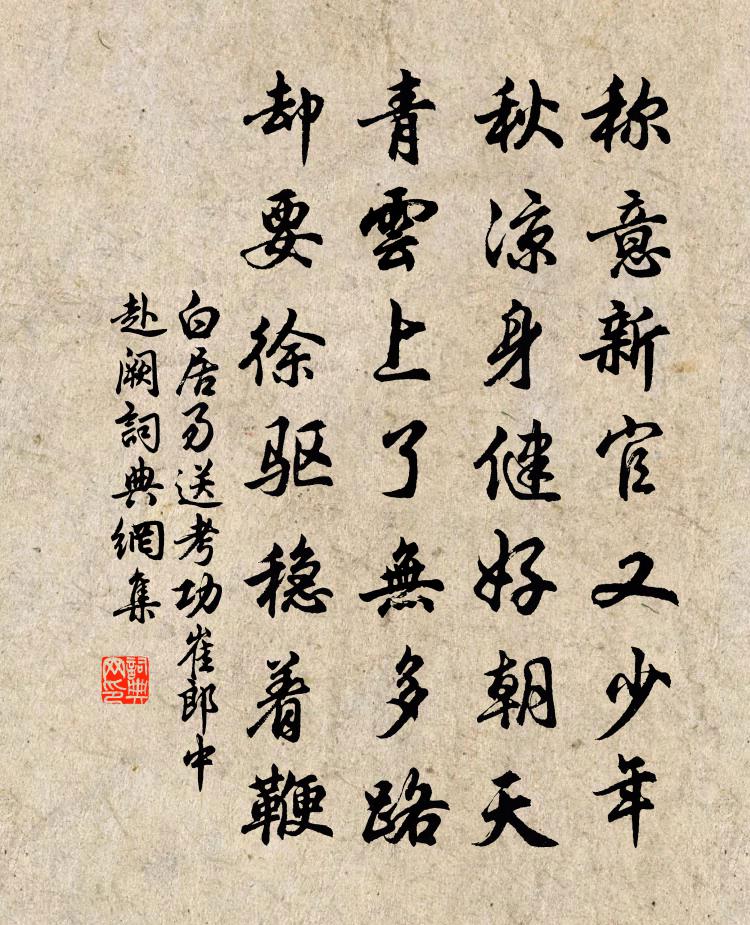 称意新官又少年
秋凉身健好朝天
青雲上了無多路
却要徐驱稳着鞭
白居易送考功崔郎中
赴阙詞典網集
詞典网印